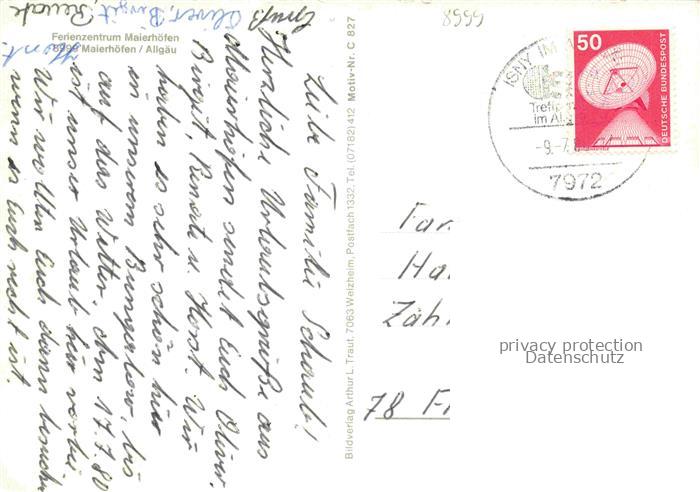 Ferienzentrum Maierhöfen
8999 Maierhöfen / Allgäu
Liebe Familie Schaub!
Herzliche Urlaubsgrüße aus
Maierhöfen sendet Euch Oliver,
Birgit, Renate u. Horst. Wir
haben es sehr schön hier
in unserem Bungalow, bis
auf das Wetter. Am 17.7.80
ist unser Urlaub hier vorbei.
Wir wollten Euch dann besuchen
wenn es Euch recht ist.
Gruß Oliver, Birgit, Renate
Horst
Bildverlag Arthur L. Traut, 7063 Welzheim, Postfach 1332, Tel. (07182) 412 Motiv-Nr. C 827
8999
ISNY IM
Treffp
im Al
-9.-7.
7972
50
DEUTSCHE BUNDESPOST
Fam
Ha
Zäh
78 Fr
privacy protection
Datenschutz